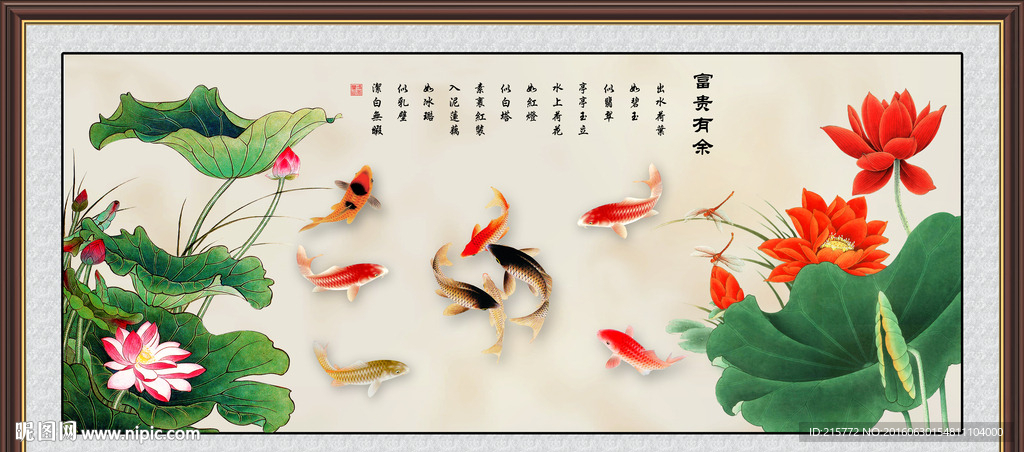 富贵有余
出水荷葉
如碧玉
似翡翠
亭亭玉立
水上荷花
如紅燈
似白塔
素裹紅裝
入泥蓮藕
如冰璐
似乳璧
潔白無暇
昵图网 www.nipic.com
ID:215772 NO:20160630154811104000